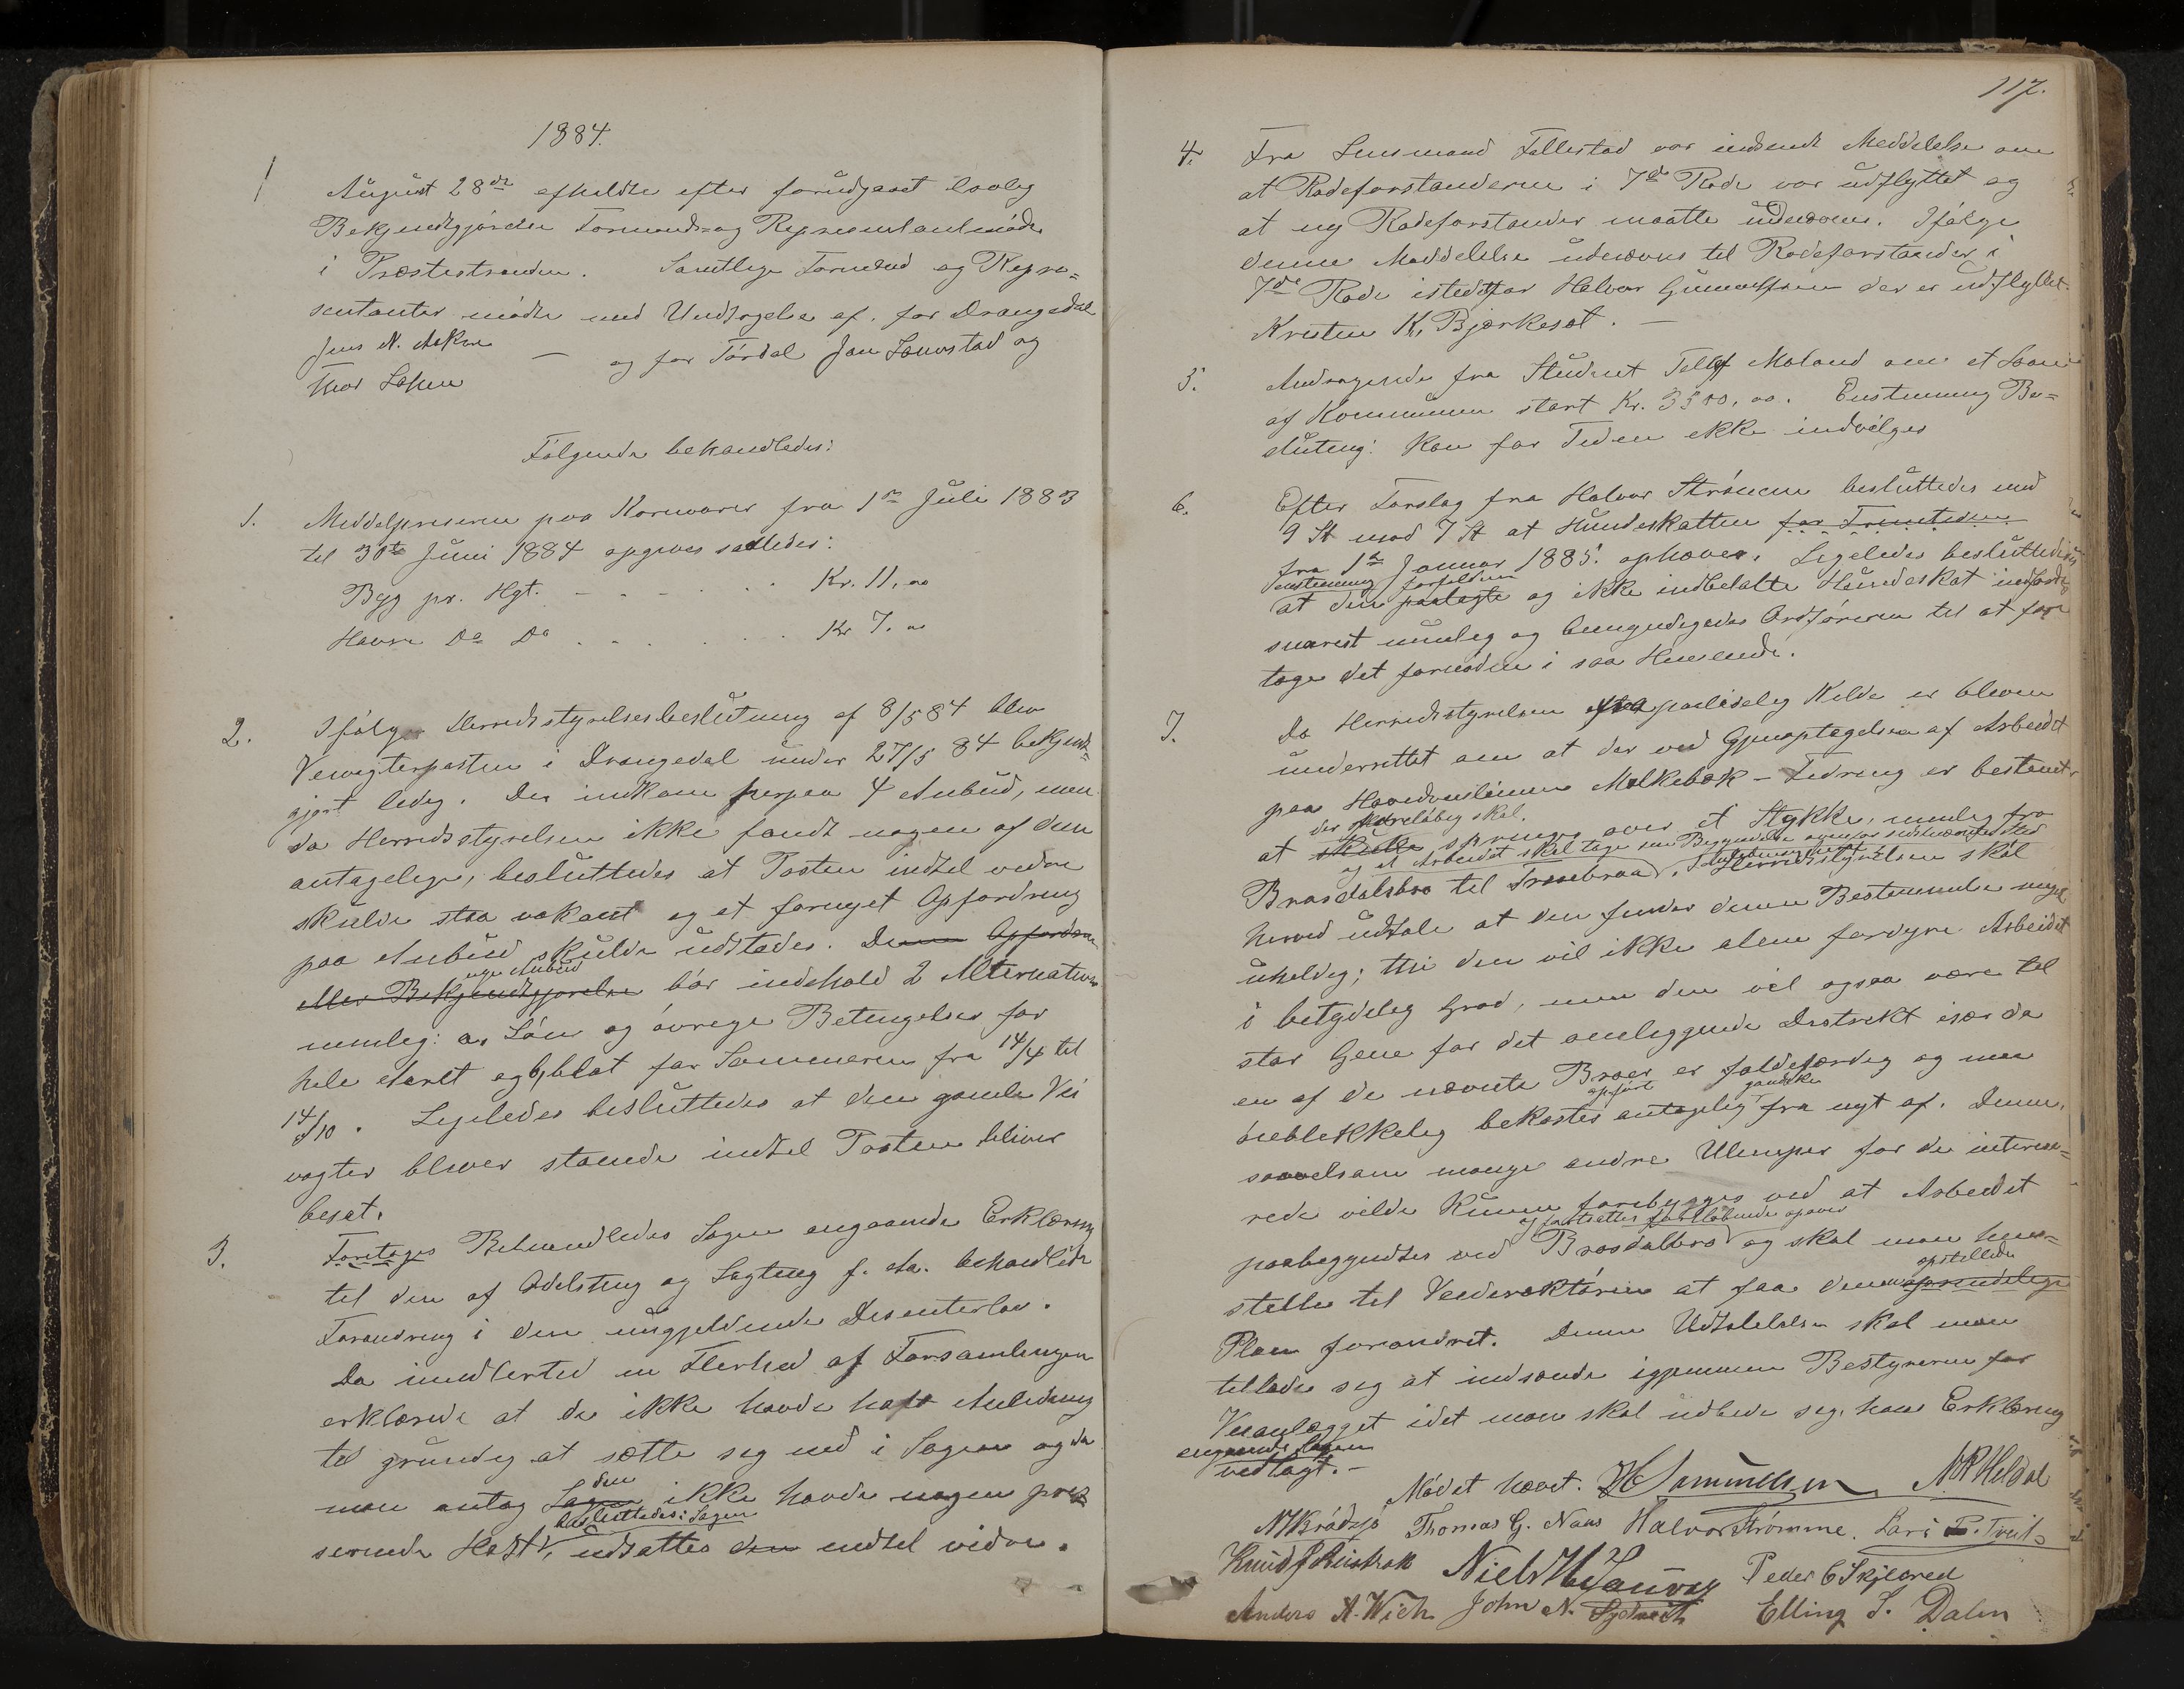 1884.
August 28de afholdtes efter forudgaaet lovlig
Bekjendtgjørelse Formands og Repræsentantmøde
i Præstestranden. Samtlige Formænd og Repræ=
sentanter mødte med Undtagelse af, for Drangedal
Jens N. Aakre
— og for Tørdal Jon Lønnestad og
Thor
Følgende behandledes:
1. Middelpriserne paa Kornvarer fra 1ste Juli 1883
til 30te Juni 1884 opgives saaledes:
Byg pr. Hgt. Kr. 11,00
Havre Do Do Kr 7.00
2. Ifølge Herredsstyrelsesbeslutning af 8/5 84 blev
Veivogterposten i Drangedal under 27/5 84 bekjendt=
gjort ledig. Der indkom herpaa 4 Anbud, men
da Herredsstyrelsen ikke fandt nogen af dem
antagelige, besluttedes at Posten indtil videre
skulde staa vakant og et fornyet Opfordring
paa Anbud skulde udstedes. Denne Opfordring
nye Anbud
eller Bekjendtgjørelse bør indehold 2 Alternativer
nemlig: a, Løn og øvrige Betingelser for
hele Aaret og b, blot for Sommeren fra 14/4 til
14/10. Ligeledes besluttedes at den gamle Vei
vogter bliver staaende indtil Posten bliver
besat.
3. Foretages Behandledes Sagen angaaende Erklæring
til den af Odelsting og Lagting f. A. behandlede
Forandring i den nugjældende Disenterlov.
Da imidlertid en Flerhed af Forsamlingen
erklærede at de ikke havde havt Anledning
til grundig at sætte sig ind i Sagen og da
den
man antog Sagen ikke havde nogen pres
besluttedes: Sagen
serende Hast, udsattes den indtil videre.
117.
4. Fra Lensmand Tellestad var indsendt Meddelelse om
at Rodeforstanderen i 7de Rode var udflyttet og
at ny Rodeforstander maatte udnævnes. Ifølge
denne Meddelelse udnævnes til Rodeforstander i
7de Rode istedetfor Halvor Gunnulfsen der er udflyttet
Kristen K. Bjørkesæt. —
5. Andragende fra Student Tellef Moland om et Laan
af Kommunen stort Kr. 3500,00. Enstemmig Be=
slutning: Kan for Tiden ikke indvilges
6. Efter Forslag fra Halvor Strømme besluttedes med
9 St mod 7 St at Hundeskatten for Fremtiden
fra 1ste Januar 1885 ophæves. Ligeledes besluttedes
enstemmig forfaldne
at den paalagte og ikke indbetalte Hundeskat indfordres
snarest mulig og bemyndigedes Ordføreren til at fore
tage det fornødne i saa Henseende.
7. Da Herredsstyrelsen fra paalidelig Kilde er bleven
underrettet om at der ved Gjenoptagelsen af Arbeidet
paa Hovedveilinien Molkebæk - Tidreng er bestemt
der foreløbig skal,
at skulle springes over et Stykke, nemlig fra
og at Arbeidet skal tage sin Begyndelse ovenfor sidstnævnte Sted
Brosdalsbro til
Herredsstyrelsen skal
herved udtale at den finder denne Bestemmelse meget
uheldig; thi den vil ikke alene fordyre Arbeidet
i betydelig Grad, men den vil ogsaa være til
stor Gene for det omliggende Distrikt især da
en af de nævnte Broer er faldefærdig og maa
opført ganske
øieblikkelig bekostes antagelig fra nyt af. Denne,
saavelsom mange andre Ulemper for de interesse=
rede vilde kunne forebygges ved at Arbeidet
og fortsattes fortløbende opover
paabegyndtes ved Brosdalsbro og skal man hen=
opstillede
stille til Veidirektøren at faa den oprindelige
Plan forandret. Denne Udtalelse skal man
tillade sig at indsende igjennem Bestyreren for
Veianlægget idet man skal udbede sig hans Erklæring
angaaende Sagen
vedlagt. —
Mødet hævet. N R Heldal
Thomas G. Naas Halvor Strømme.
Peder C Skjelbred
Anders A. Wich John N. Elling S. Dalen